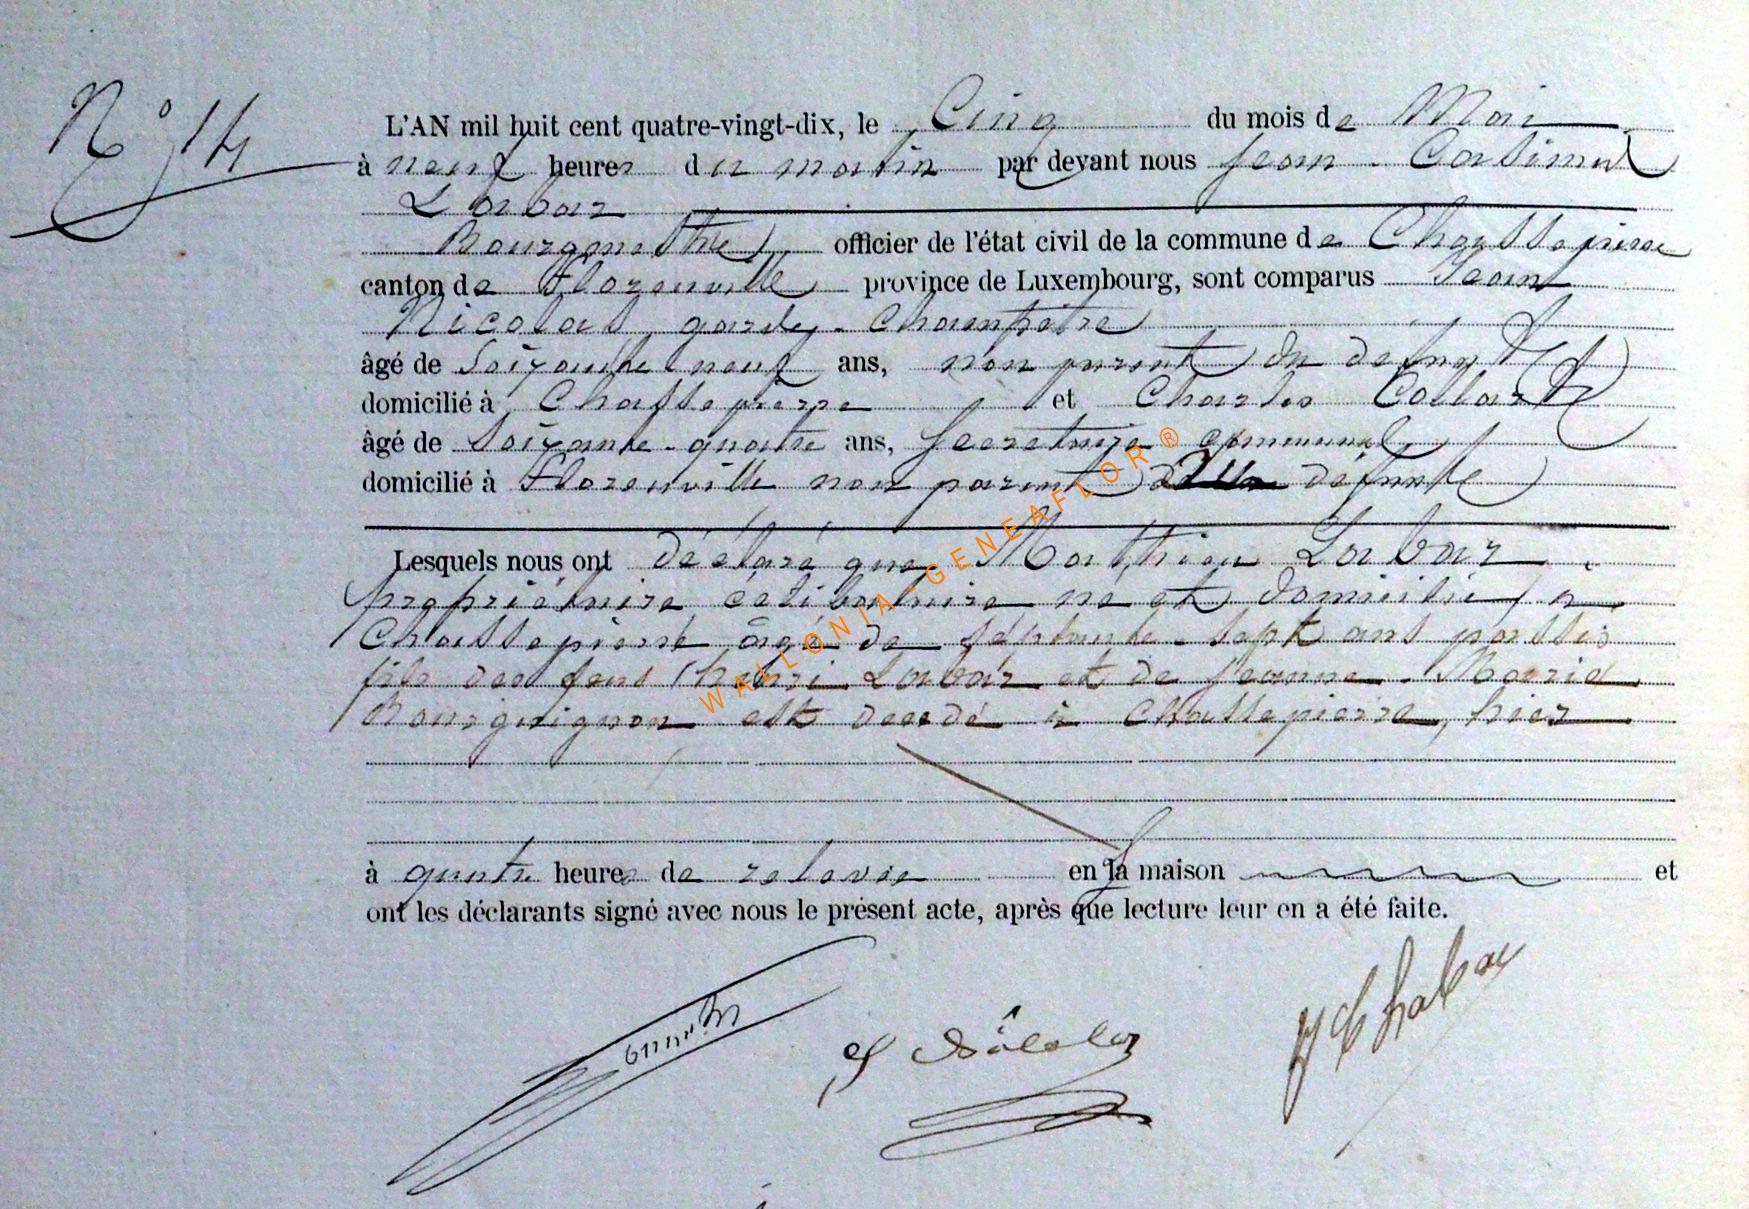 N° 14
L'AN mil huit cent quatre-vingt-dix, le Cinq du mois de Mai
à neuf heures du matin par devant nous Jean-Casimir
Labbar
Bourgmestre officier de l'état civil de la commune de Chassepierre
canton de Florenville province de Luxembourg, sont comparus Jean
Nicolas, garde-champêtre
âgé de soixante neuf ans, non parent du defunt
domicilié à Chassepierre et Charles Collart
âgé de soixante-quatre ans, Secretaire communal
domicilié à Florenville non parent defunt
Lesquels nous ont déclaré que Mathieu Labbar
propriétaire célibataire né et domicilié à
Chassepierre âgé de septante-sept ans passés
fils des feus Henri Labbar et de Jeanne-Marie
Bourguignon est decedé à Chassepierre, hier
à quatre heures de relevée en la maison et
ont les déclarants signé avec nous le présent acte, après que lecture leur en a été faite.
WALLONIA-GENEAFLOR®